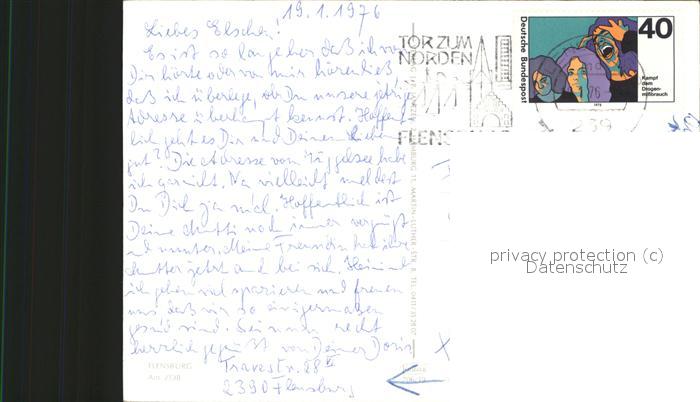 19.1.1976
Liebes Elschen!
Es ist so lange her daß ich von
Dir hörte oder von mir hören ließ
daß ich überlege, ob Du unsere jetzige
Adresse überhaupt kennst. Hoffent-
lich geht es Dir und Deinen Lieben
gut? Die Adresse vom habe
ich gar nicht. Na vielleicht meldest
Du Dich ja mal. Hoffentlich ist
Deine Mutti noch immer vergnügt
und munter. Meine Freundin hat ihre
Mutter jetzt auch bei sich.
ich gehen viel spazieren und freuen
uns daß wir so einigermaßen
gesund sind. Sei nun recht
herzlich gegrüßt von Deiner Doris
Travestr. 28
2390 Flensburg
FLENSBURG
TOR ZUM
NORDEN
FLENSBURG
239
Deutsche Bundespost
40
Kampf
dem
Drogen-
mißbrauch
1975
privacy protection (c)
Datenschutz